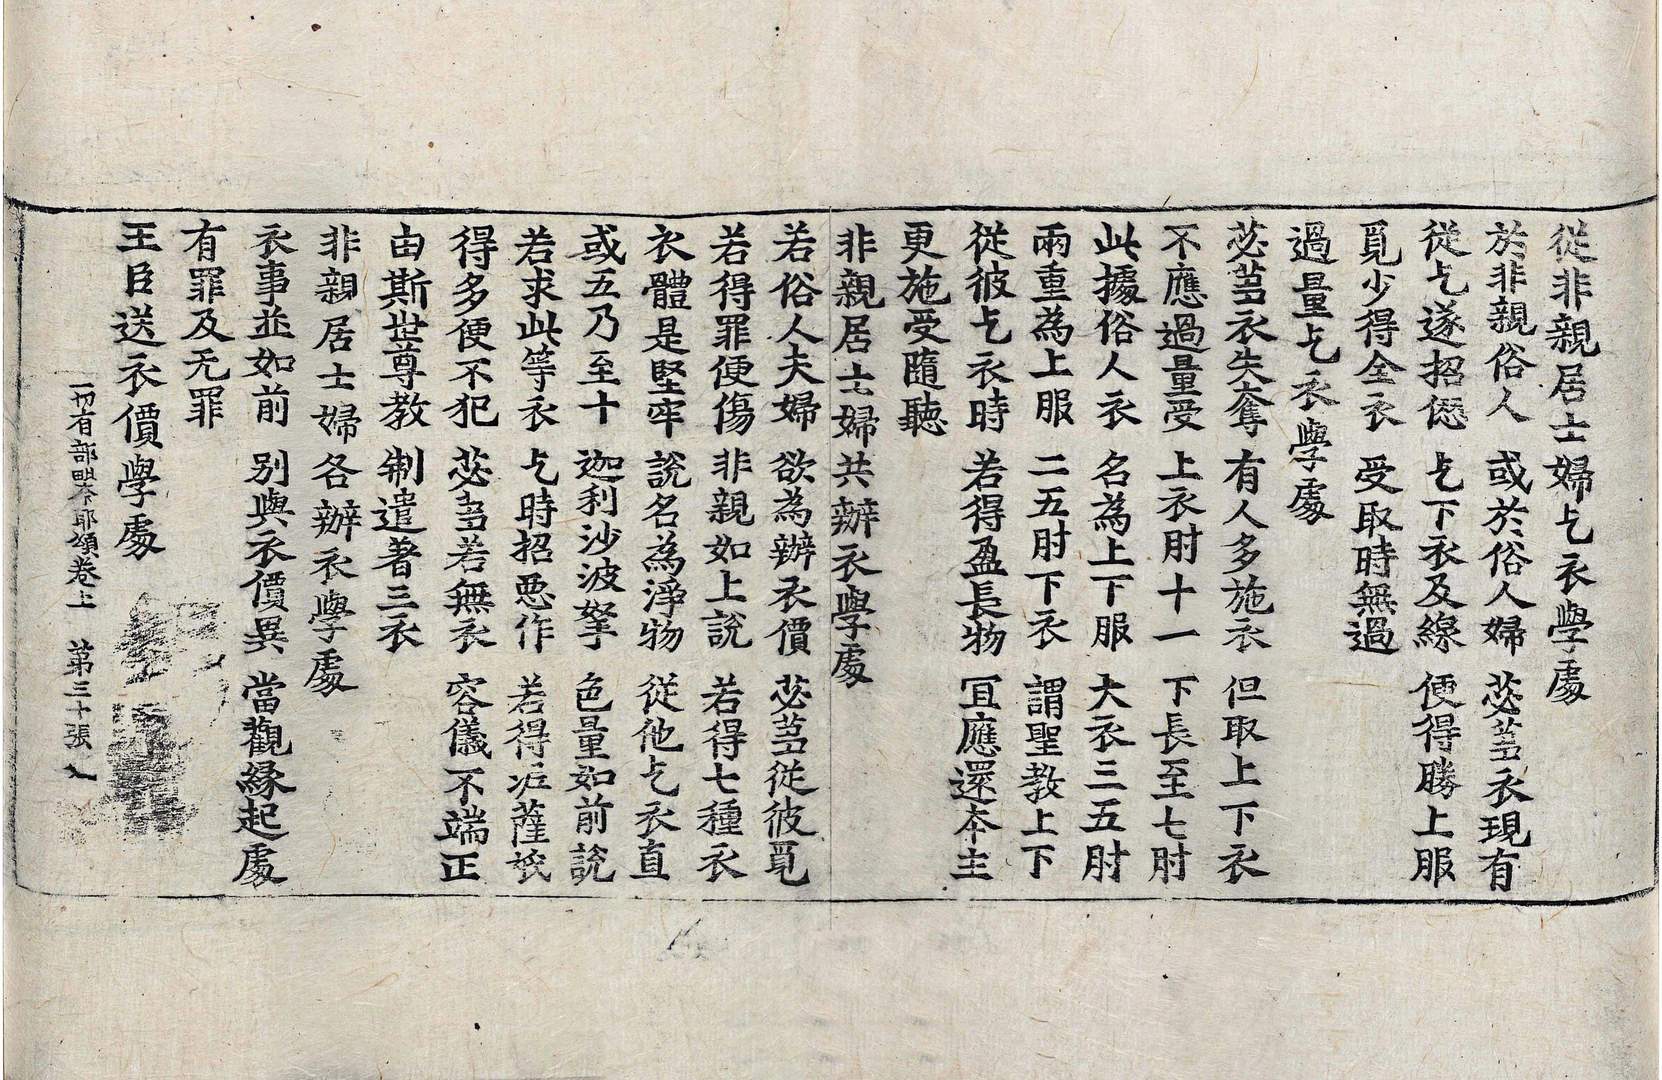 從非親居士婦乞衣學處
於非親俗人　或於俗人婦　苾蒭衣現有
從乞遂招愆　乞下衣及線　便得勝上服
覓少得全衣　受取時無過
過量乞衣學處
苾蒭衣失奪　有人多施衣　但取上下衣
不應過量受　上衣肘十一　下長至七肘
此據俗人衣　名為上下服　大衣三五肘
兩重為上服　二五肘下衣　謂聖教上下
從彼乞衣時　若得盈長物　冝應還夲主
更施受隨聽
非親居士婦共辦衣學處
若俗人夫婦　欲為辦衣價　苾蒭從彼覓
若得罪便傷　非親如上說　若得七種衣
衣體是堅牢　說名為淨物　從他乞衣直
或五乃至十　迦利沙波拏　色量如前說
若求此等衣　乞時招悪作　若得泝薩袨
得多便不犯　苾蒭若無衣　容儀不端正
由斯世尊教　制遣著三衣
非親居士婦各辦衣學處
衣事並如前　別與衣價異　當觀緣起處
有罪及无罪
王臣送衣價學處
一切有部毗奈耶頌卷上　第三十張　入